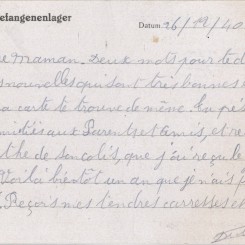 elangenenlager
Datum 26/12/40
e Maman. Deux mots pour te d
s nouvelles qui sont très bonnes
la carte te trouve de même. En
mitiés aux Parents et amis, et re
the de ses colis, que j'ai reçu le
Voilà bientôt un an que je n'ai p
Reçois mes tendres caresses et